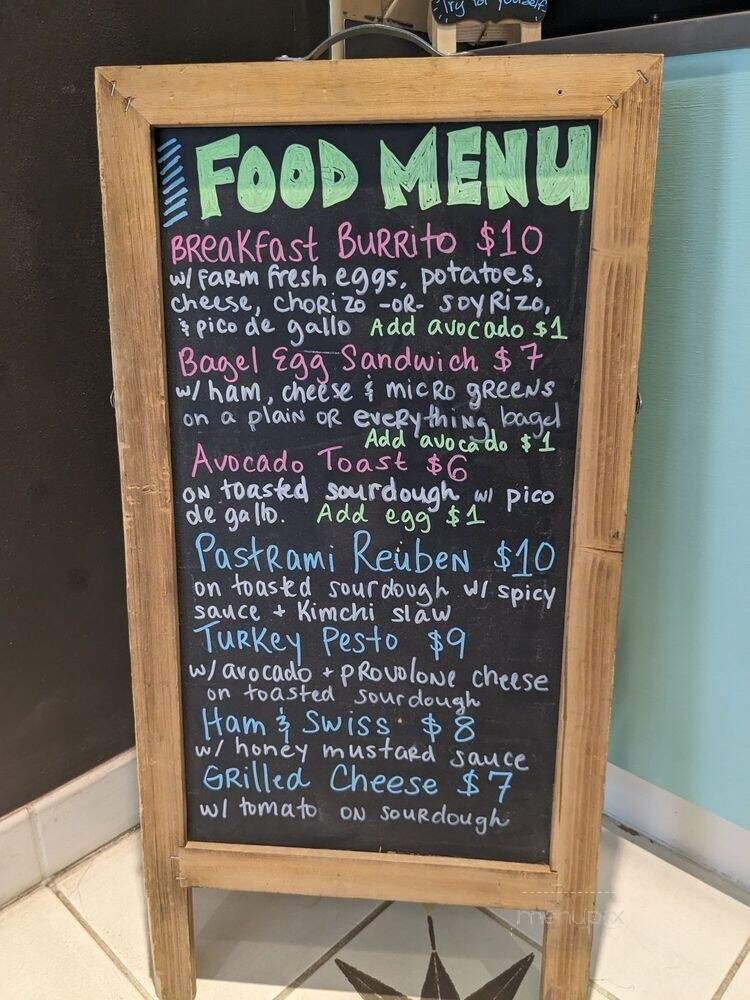 Try for yourself
FOOD MENU
BReaKfast BuRRito $10
w/ FaRm fresh eggs, potatoes,
cheese, choRizo -OR- SoyRizo,
& pico de gallo Add avocado $1
Bagel Egg Sandwich $7
w/ ham, cheese & micRo gReeNs
on a plaiN OR eveRythiNg bagel
Add avocado $1
Avocado Toast $6
oN toasted sourdough w/ pico
de gallo. Add egg $1
PastRami ReubeN $10
on toasted sourdough w/ spicy
sauce + Kimchi slaw
TuRKey Pesto $9
w/ avocado + PROvoloNe cheese
on toasted sourdough
Ham & Swiss $8
w/ honey mustaRd sauce
GRilled Cheese $7
w/ tomato oN souRdough
menupix